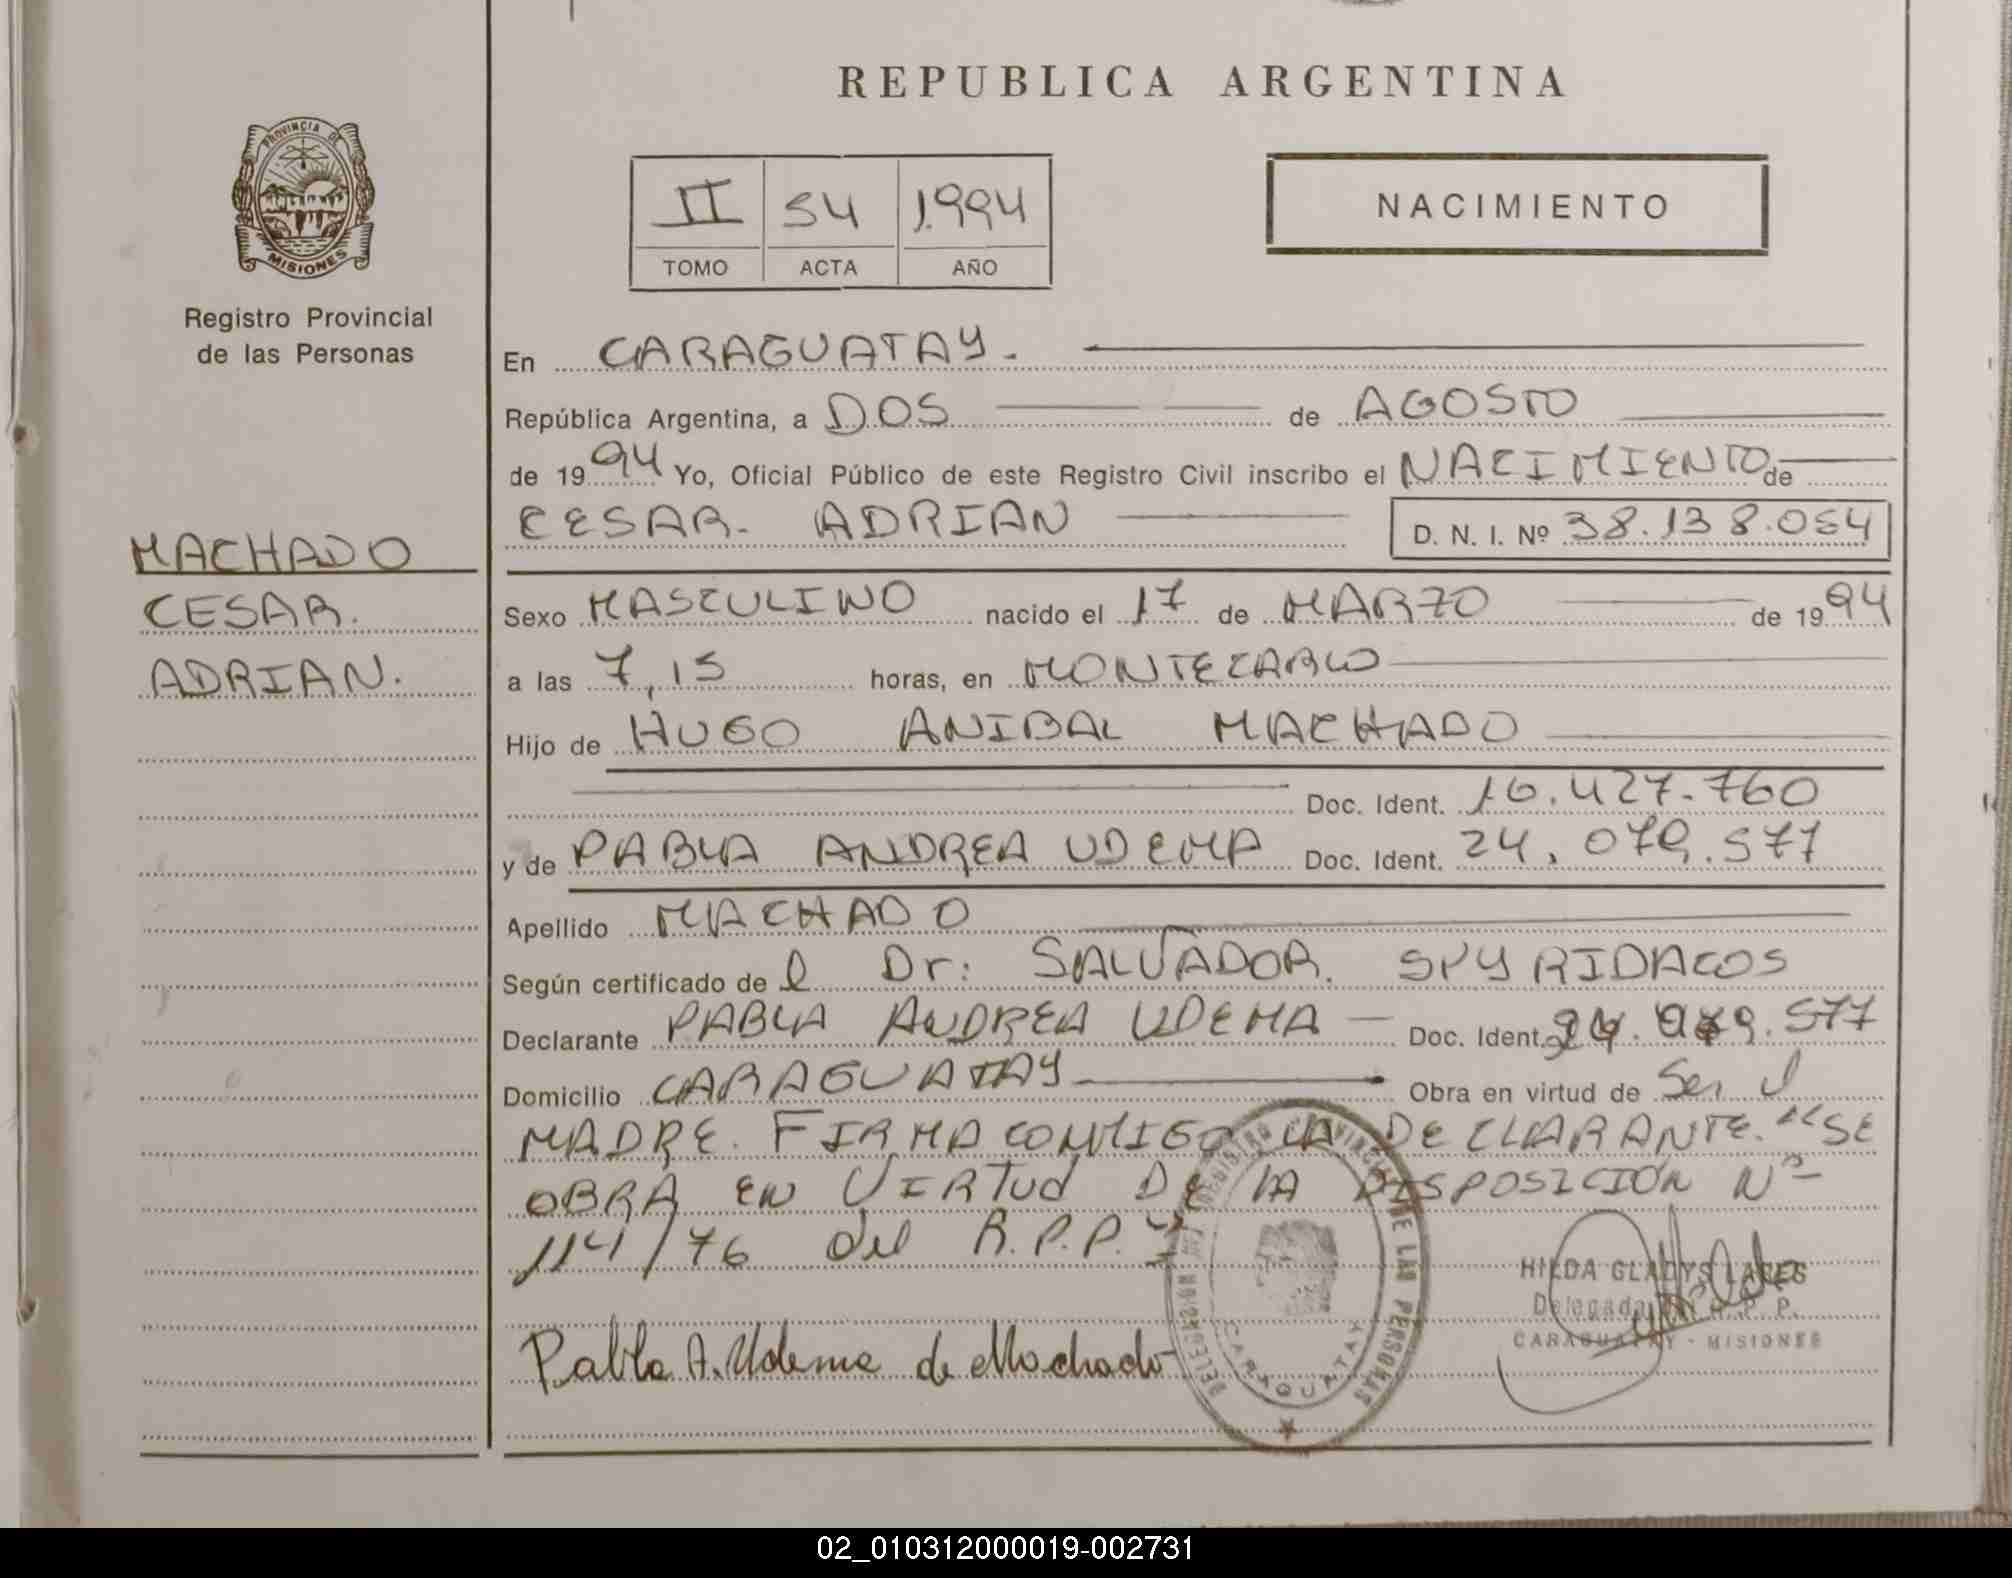 REPUBLICA ARGENTINA
PROVINCIA DE
MISIONES
Registro Provincial
de las Personas
II 54 1.994
TOMO ACTA AÑO
NACIMIENTO
En CARAGUATAY.
República Argentina, a DOS de AGOSTO
de 1994 Yo, Oficial Público de este Registro Civil inscribo el NACIMIENTO de
CESAR. ADRIAN D. N. I. Nº 38.138.054
MACHADO
CESAR.
ADRIAN.
Sexo MASCULINO nacido el 17 de MARZO de 1994
a las 7,15 horas, en MONTECARLO
Hijo de HUGO ANIBAL MACHADO
Doc. Ident. 16.427.760
y de PABLA ANDREA UDEMA Doc. Ident. 24.079.577
Apellido MACHADO
Según certificado de l Dr: SALVADOR. SPYRIDACOS
Declarante PABLA ANDREA UDEMA Doc. Ident. 24.079.577
Domicilio CARAGUATAY Obra en virtud de Ser
MADRE. FIRMA CONMIGO LA DECLARANTE. "SE
OBRA EN VIRTUD DE LA DISPOSICIÓN Nº
114/76 del R.P.P."
HILDA GLADYS
Delegada R. P. P.
CARAGUATAY - MISIONES
Pabla A. Udema de Machado
REGISTRO PROVINCIAL DE LAS PERSONAS
CARAGUATAY
02_010312000019-002731